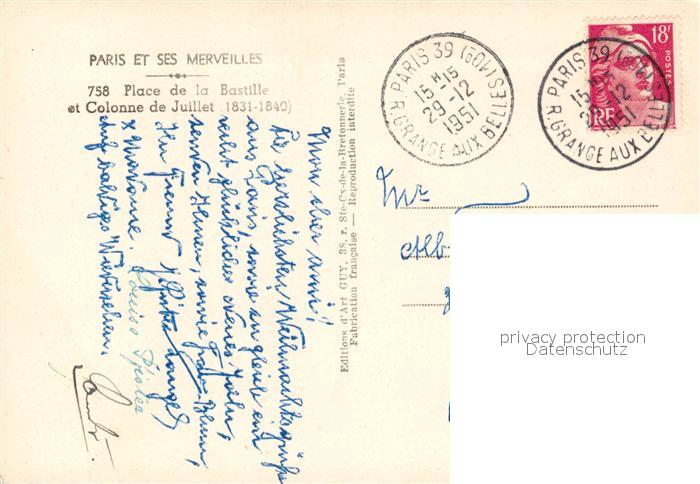 PARIS ET SES MERVEILLES
758 Place de la Bastille
et Colonne de Juillet (1831-1840)
Editions d'Art GUY, 38, r. Ste-Cx-de-la-Bretonnerie, Paris
Fabrication française — Reproduction interdite
PARIS 39 (60) 
15 H 15
29-12
1951
R. GRANGE AUX BELLES
18F
POSTES
RF
PARIS 39
15 H
12
1951
R. GRANGE AUX BELLES
Mon cher ami!
Die herzlichsten Weihnachtsgrüsse
aus Paris, sowie zu gleich ein
recht glückliches neues Jahr,
Ihnen, sowie Frau Blum,
Ihr Freund
& Madame. Louise
auf baldiges Wiedersehen.
Mr
Alb
privacy protection
Datenschutz